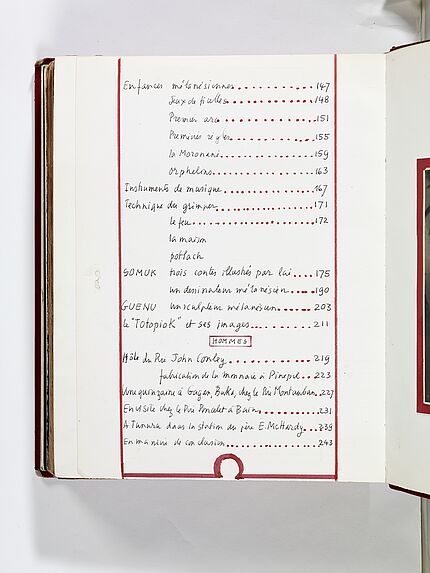 Enfances mélanésiennes ........ 147
Jeux de ficelles ........ 148
Premier arc ........ 151
Premières règles ........ 155
la Moronani ........ 159
orphelins ........ 163
Instruments de musique ........ 167
Technique du grimper ........ 171
le feu ........ 172
la maison
potlach
SOMUK trois contes illustrés par lui ..... 175
un dessinateur mélanésien .... 190
GUENU un sculpteur mélanésien ..... 203
le "TOtopioK" et ses images ..... 211
HOMMES
Hôte du Père John Conley ........ 219
fabrication de la monnaie à Pinepel ... 223
Une quinzaine à Gagan, Buka, chez le Père Montauban .. 227
En visite chez le Père Poncelet à Buin ..... 231
A Tunuru dans la station du père E. McHardy ... 239
En manière de conclusion ........ 243